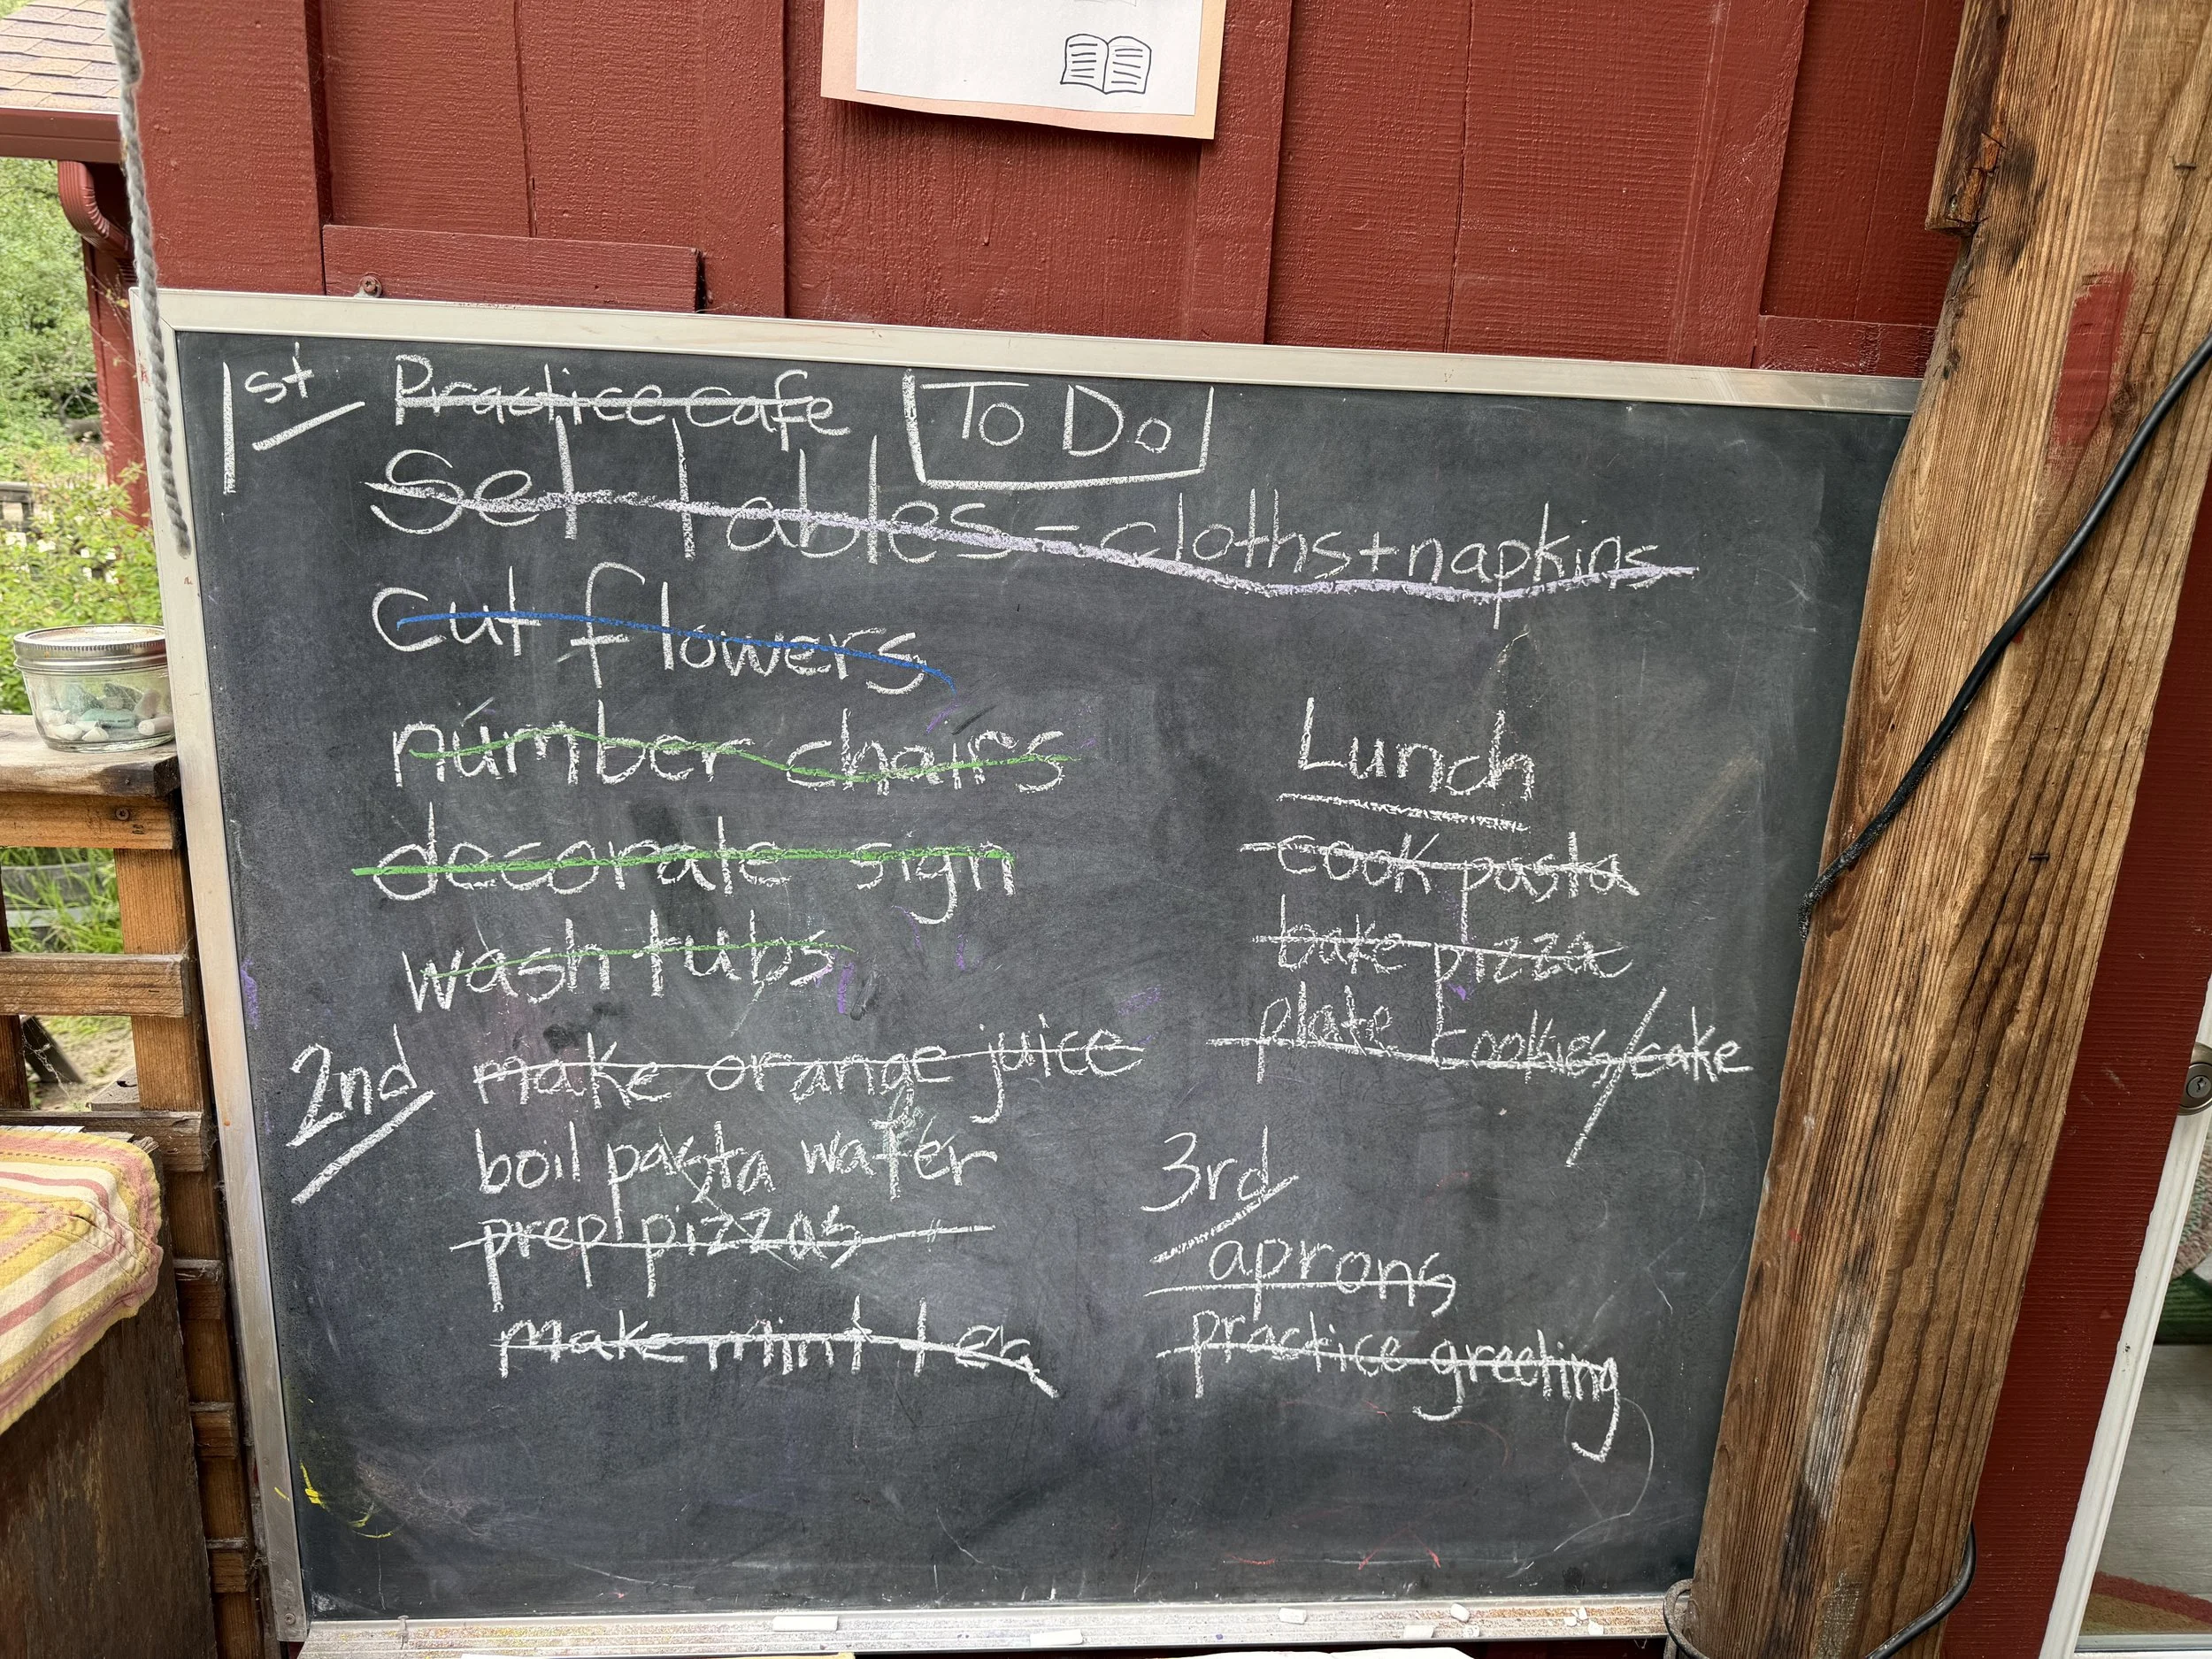 1st Practice Cafe To Do
Set Tables = cloths + napkins
cut flowers
number chairs
decorate sign
wash tubs
2nd make orange juice
boil pasta water
prep pizzas
make mint tea
Lunch
cook pasta
bake pizza
plate cookies/cake
3rd
aprons
practice greeting